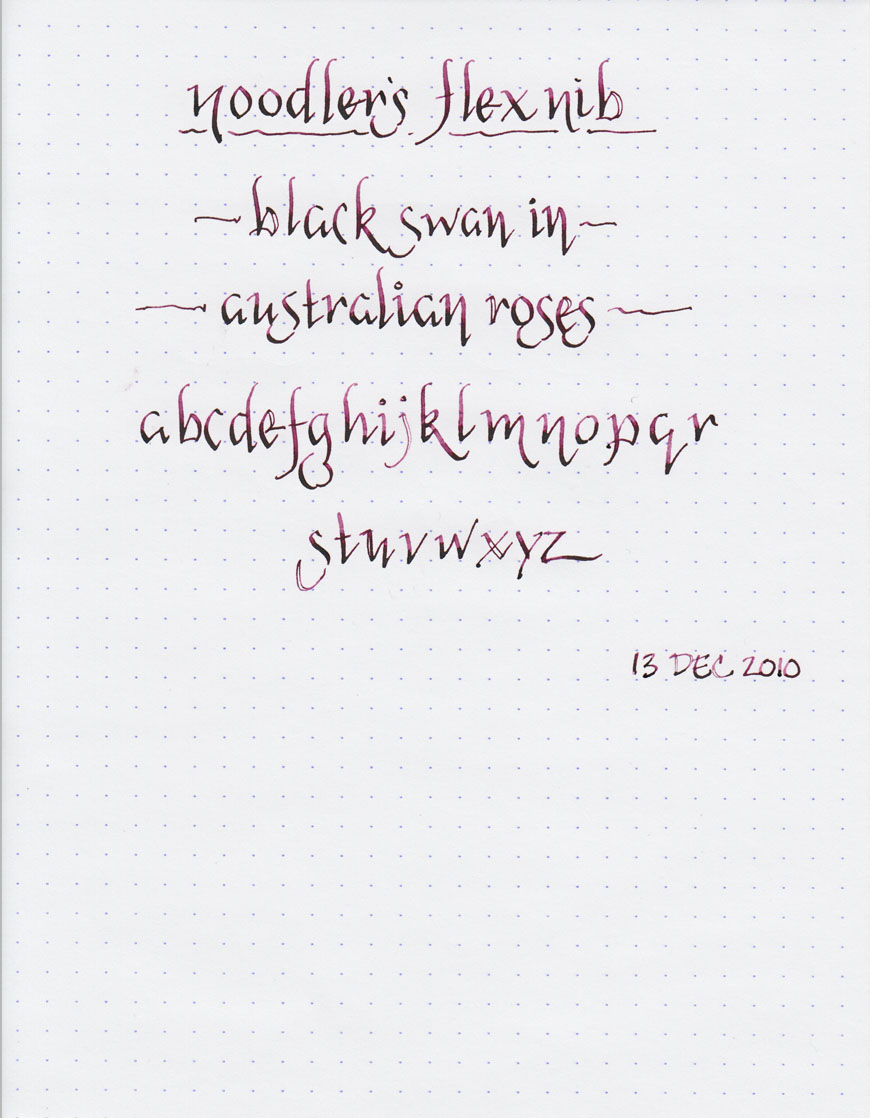 noodler's flex nib
~ black swan in ~
~ australian roses ~
abcdefghijklmnopqr
stuvwxyz
13 DEC 2010